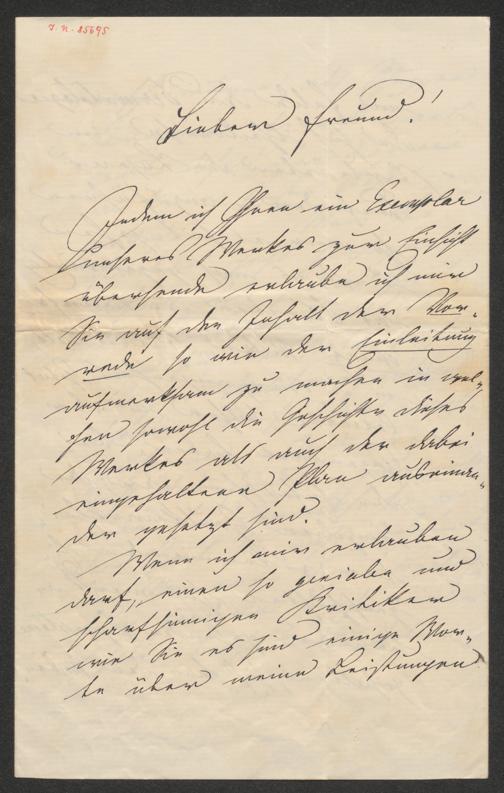 J. N. 85695
Lieber Freund!
Indem ich Ihnen ein Exemplar
unseres Werkes zur Einsicht
übersende erlaube ich mir
Sie auf den Inhalt der Vor-
rede so wie der Einleitung
aufmerksam zu machen in wel-
chen sowohl die Geschichte dieses
Werkes als auch der dabei
eingehaltene Plan auseinan-
der gesetzt sind.
Wenn ich mir erlauben
darf, einen so genialen und
scharfsinnigen Kritiker
wie Sie es sind einige Wor-
te über meine Leistungen